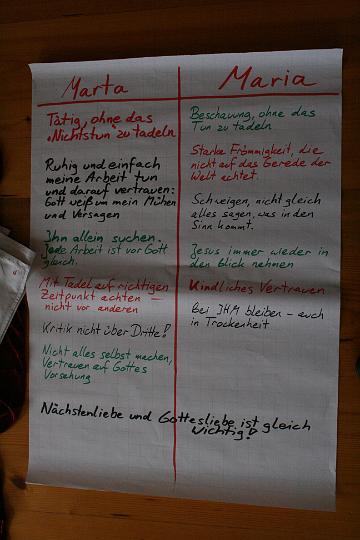 Marta
Tätig, ohne das
"Nichtstun" zu tadeln
Ruhig und einfach
meine Arbeit tun
und darauf vertrauen:
Gott weiß um mein Mühen
und Versagen
Ihn allein suchen.
Jede Arbeit ist vor Gott
gleich.
Mit Tadel auf richtigen
Zeitpunkt achten –
nicht vor anderen
Kritik nicht über Dritte!
Nicht alles selbst machen,
Vertrauen auf Gottes
Vorsehung
Maria
Beschauung, ohne das
Tun zu tadeln
Starke Frömmigkeit, die
nicht auf das Gerede der
Welt achtet.
Schweigen, nicht gleich
alles sagen, was in den
Sinn kommt.
Jesus immer wieder in
den Blick nehmen
Kindliches Vertrauen
Bei IHM bleiben – auch
in Trockenheit
Nächstenliebe und Gottesliebe ist gleich
wichtig!